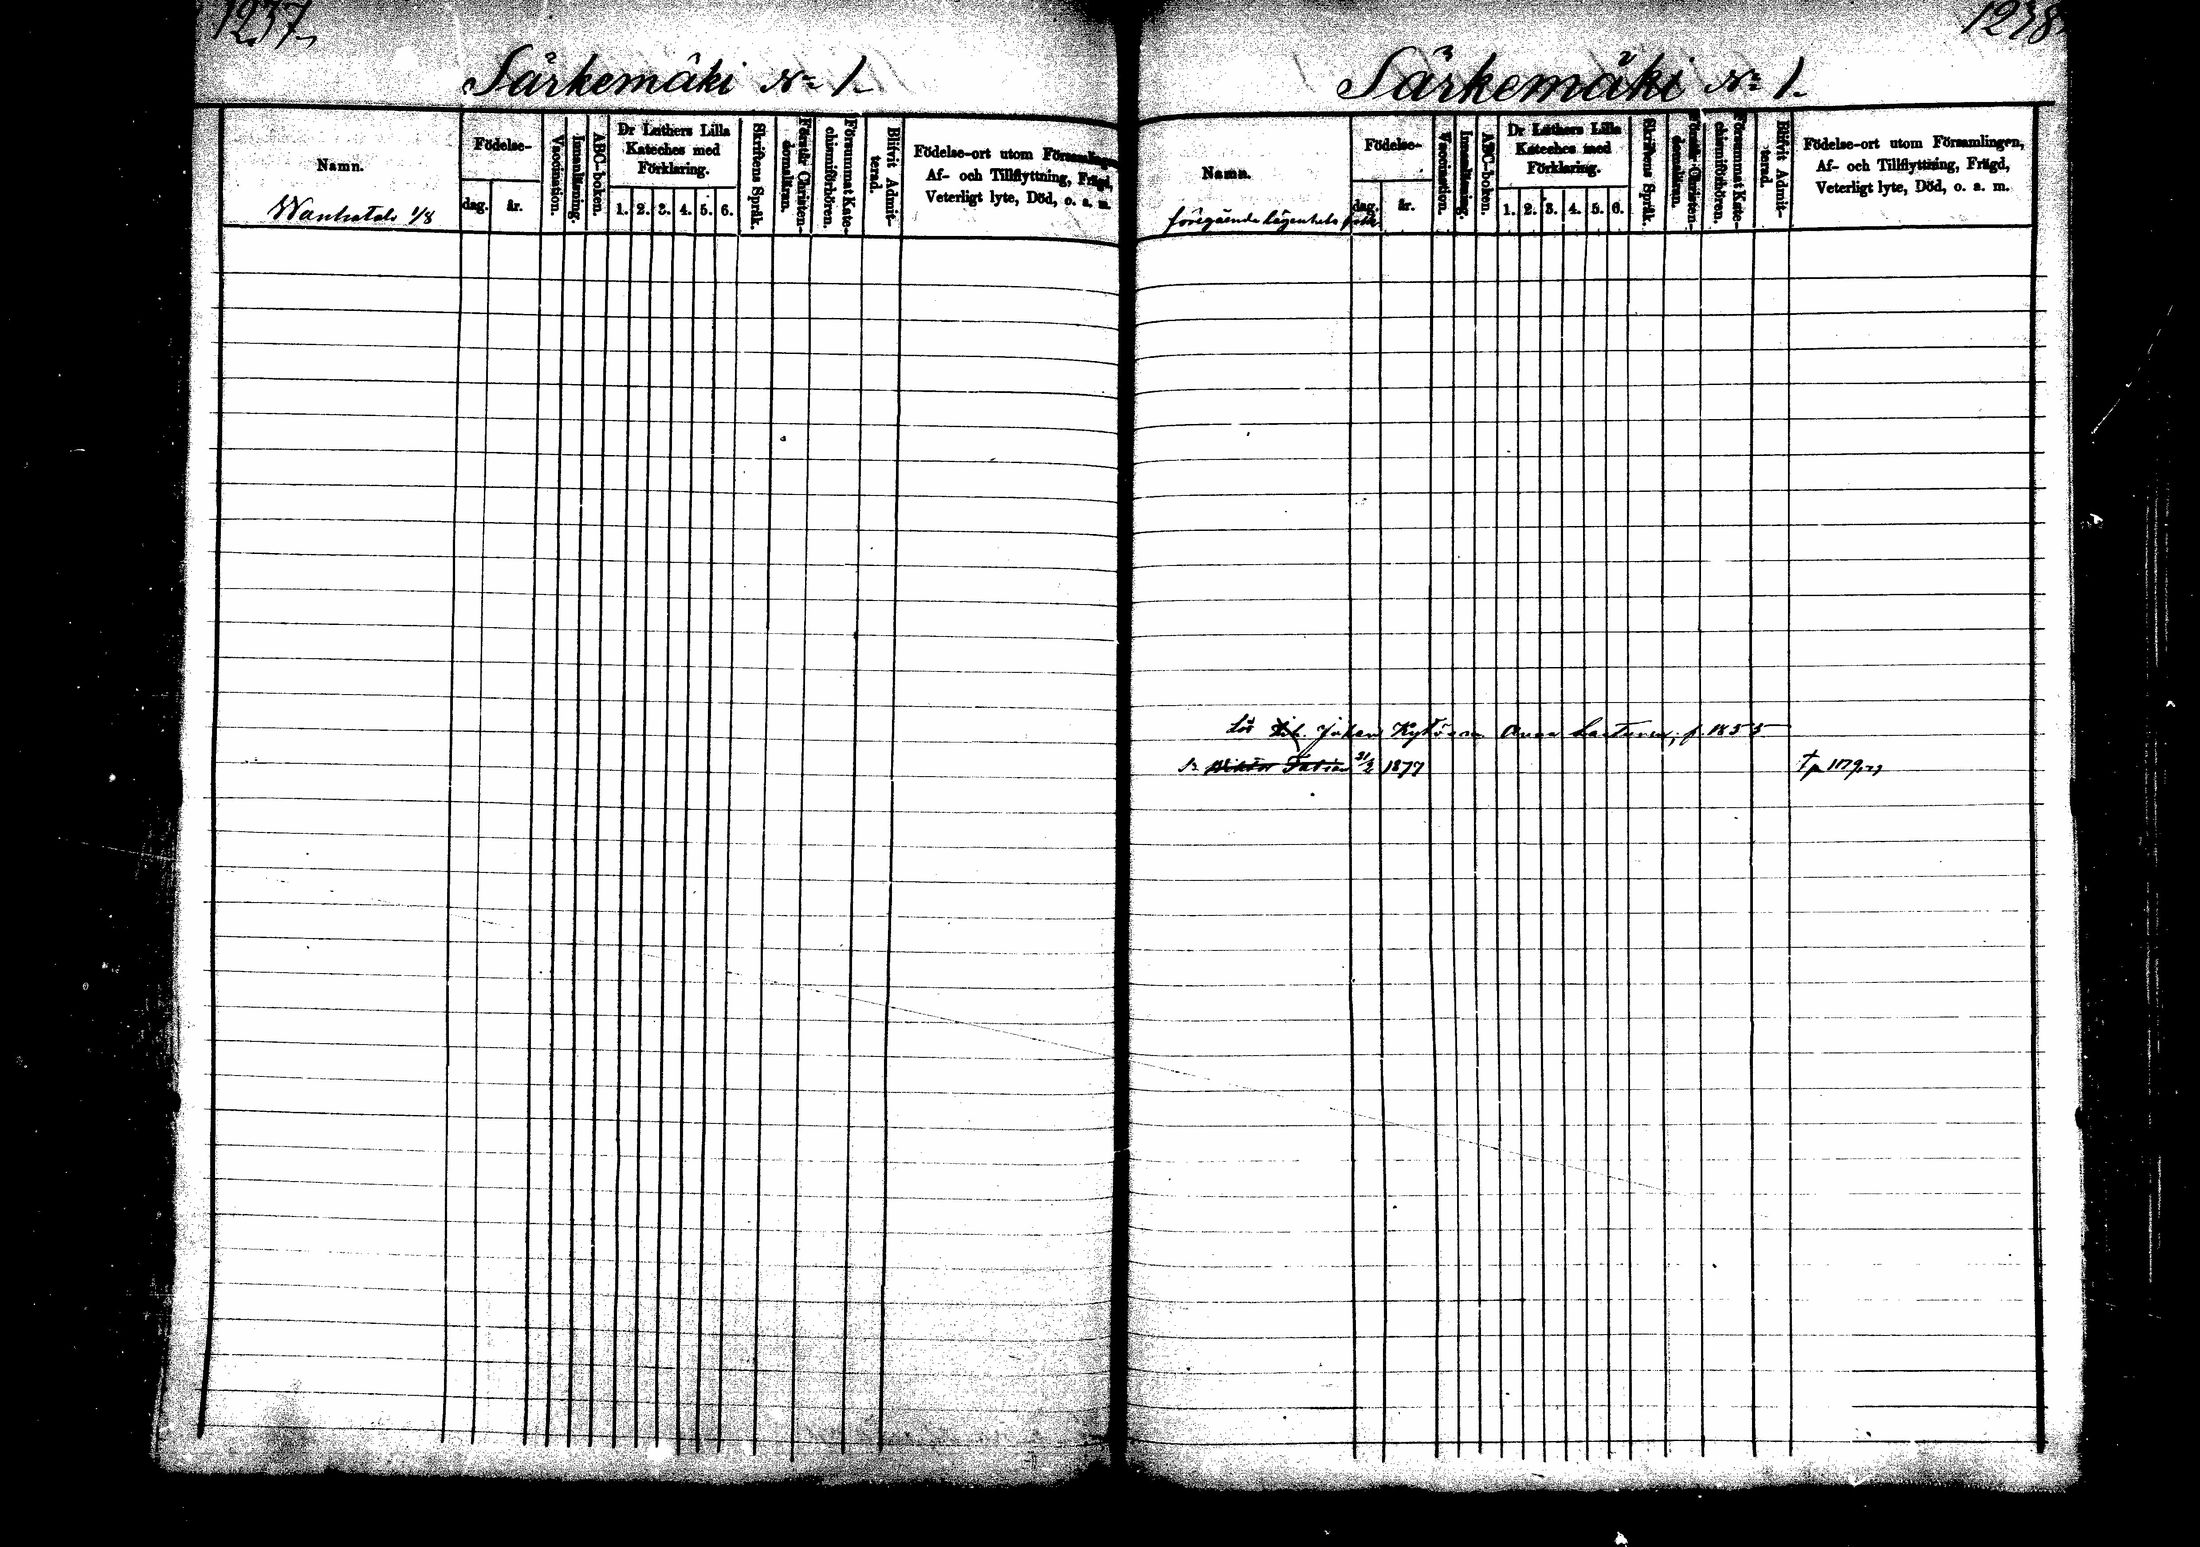 1237
Särkemäki No 1
Namn.
Födelse-
dag. år.
Vaccination.
Innanläsning.
ABC-boken.
Dr Luthers Lilla
Kateches med
Förklaring.
1. 2. 3. 4. 5. 6.
Skriftens Språk.
Förstår Christen-
domsläran.
Försummat Kate-
chismiförhören.
Blifvit Admit-
terad.
Födelse-ort utom Församlingen
Af- och Tillflyttning, Frägd,
Veterligt lyte, Död, o. a. m.
Wanhatalo 1/8
1238
Särkemäki No 1.
Namn.
Födelse-
dag. år.
Vaccination.
Innanläsning.
ABC-boken.
Dr Luthers Lilla
Kateches med
Förklaring.
1. 2. 3. 4. 5. 6.
Skriftens Språk.
Förstår Christen-
domsläran.
Försummat Kate-
chismiförhören.
Blifvit Admit-
terad.
Födelse-ort utom Församlingen,
Af- och Tillflyttning, Frägd,
Veterligt lyte, Död, o. a. m.
föregående lägenhets
Johan Anna f. 1855
1877